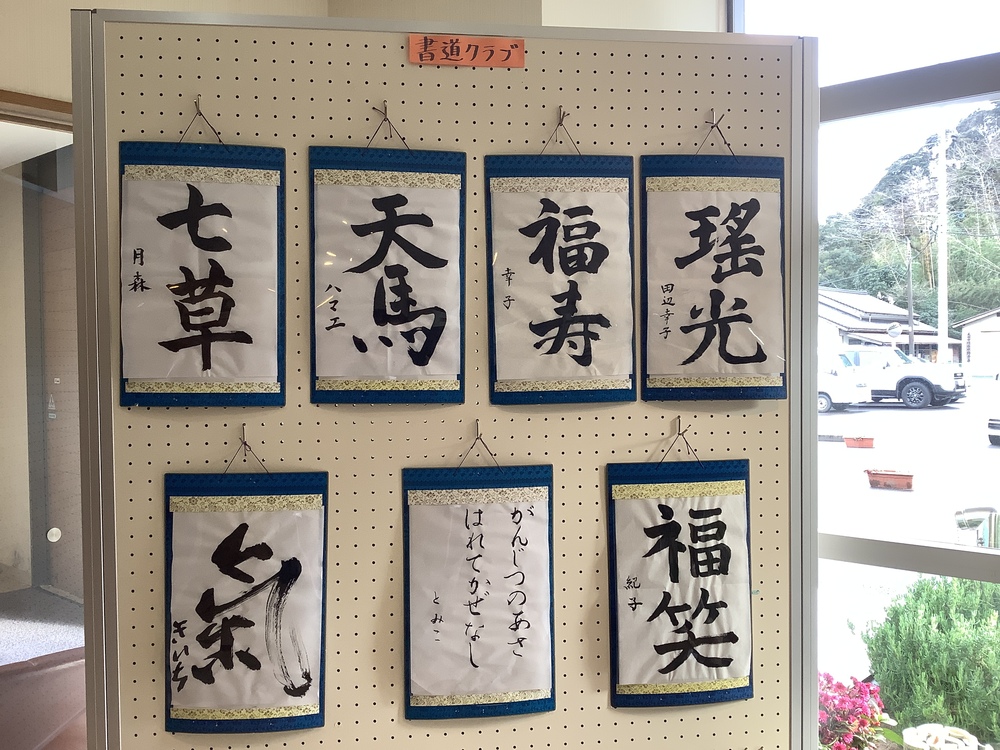 書道クラブ
瑤光
田辺幸子
福寿
幸子
天馬
ハマエ
七草
月森
福笑
紀子
がんじつのあさ
はれてかぜなし
とみこ
氣
きいち